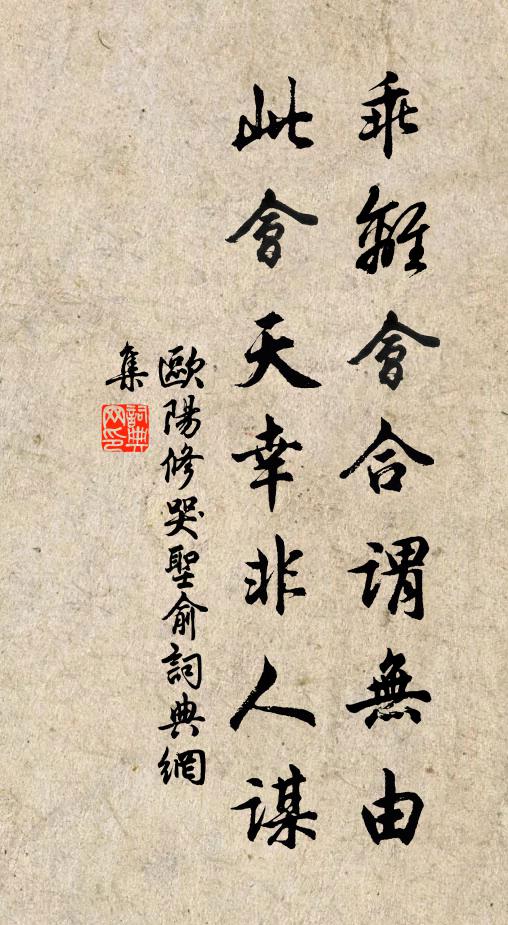 乖離會合謂無由
此會天幸非人謀
歐陽修哭聖俞詞典網
集
詞典
网印